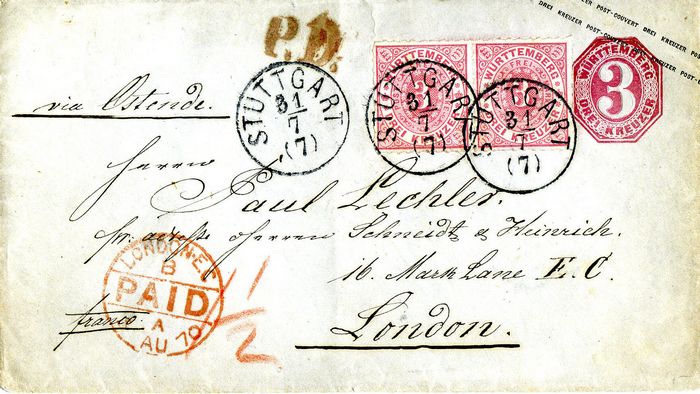 DREI KREUZER POST-COUVERT DREI KREUZER POST-COUVERT DREI KREUZER
P.D.
WÜRTTEMBERG
DREI KREUZER
WÜRTTEMBERG
DREI KREUZER
WÜRTTEMBERG
3
DREI KREUZER
STUTTGART
31
7
(7)
STUTTGART
31
7
(7)
STUTTGART
31
7
(7)
via Ostende.
Herrn
Paul Lechler.
pr. adresse Herren Schneidt & Heinrich.
16. Mark Lane E.C.
London.
franco.
LONDON-EC
B
PAID
A
AU 70
11/2